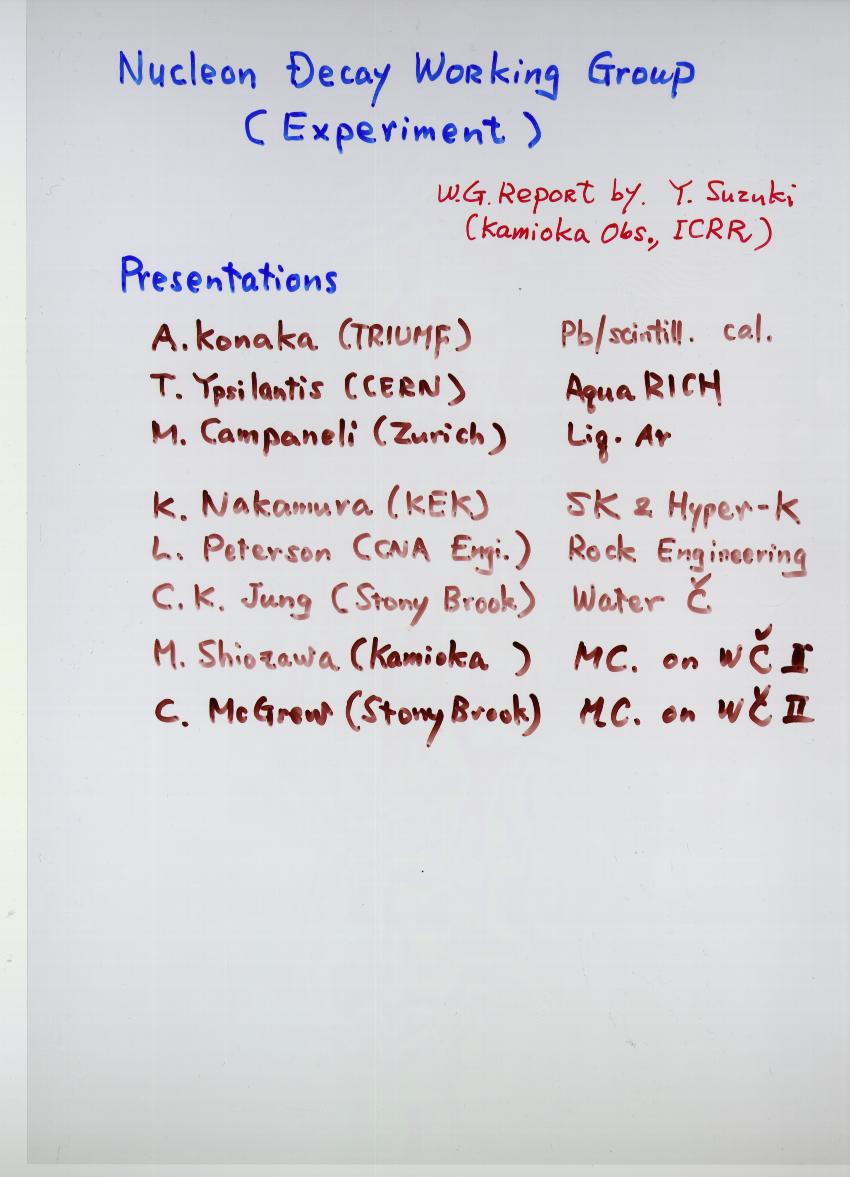 Nucleon Decay Working Group
(Experiment)
W.G. Report by. Y. Suzuki
(Kamioka Obs., ICRR)
Presentations
A. Konaka (TRIUMF) Pb/scintill. cal.
T. Ypsilantis (CERN) Aqua RICH
M. Campaneli (Zurich) Liq. Ar
K. Nakamura (KEK) SK & Hyper-K
L. Peterson (CNA Engi.) Rock Engineering
C. K. Jung (Stony Brook) Water Č
M. Shiozawa (Kamioka ) MC. on WČ I
C. McGrew (Stony Brook) MC. on WČ II